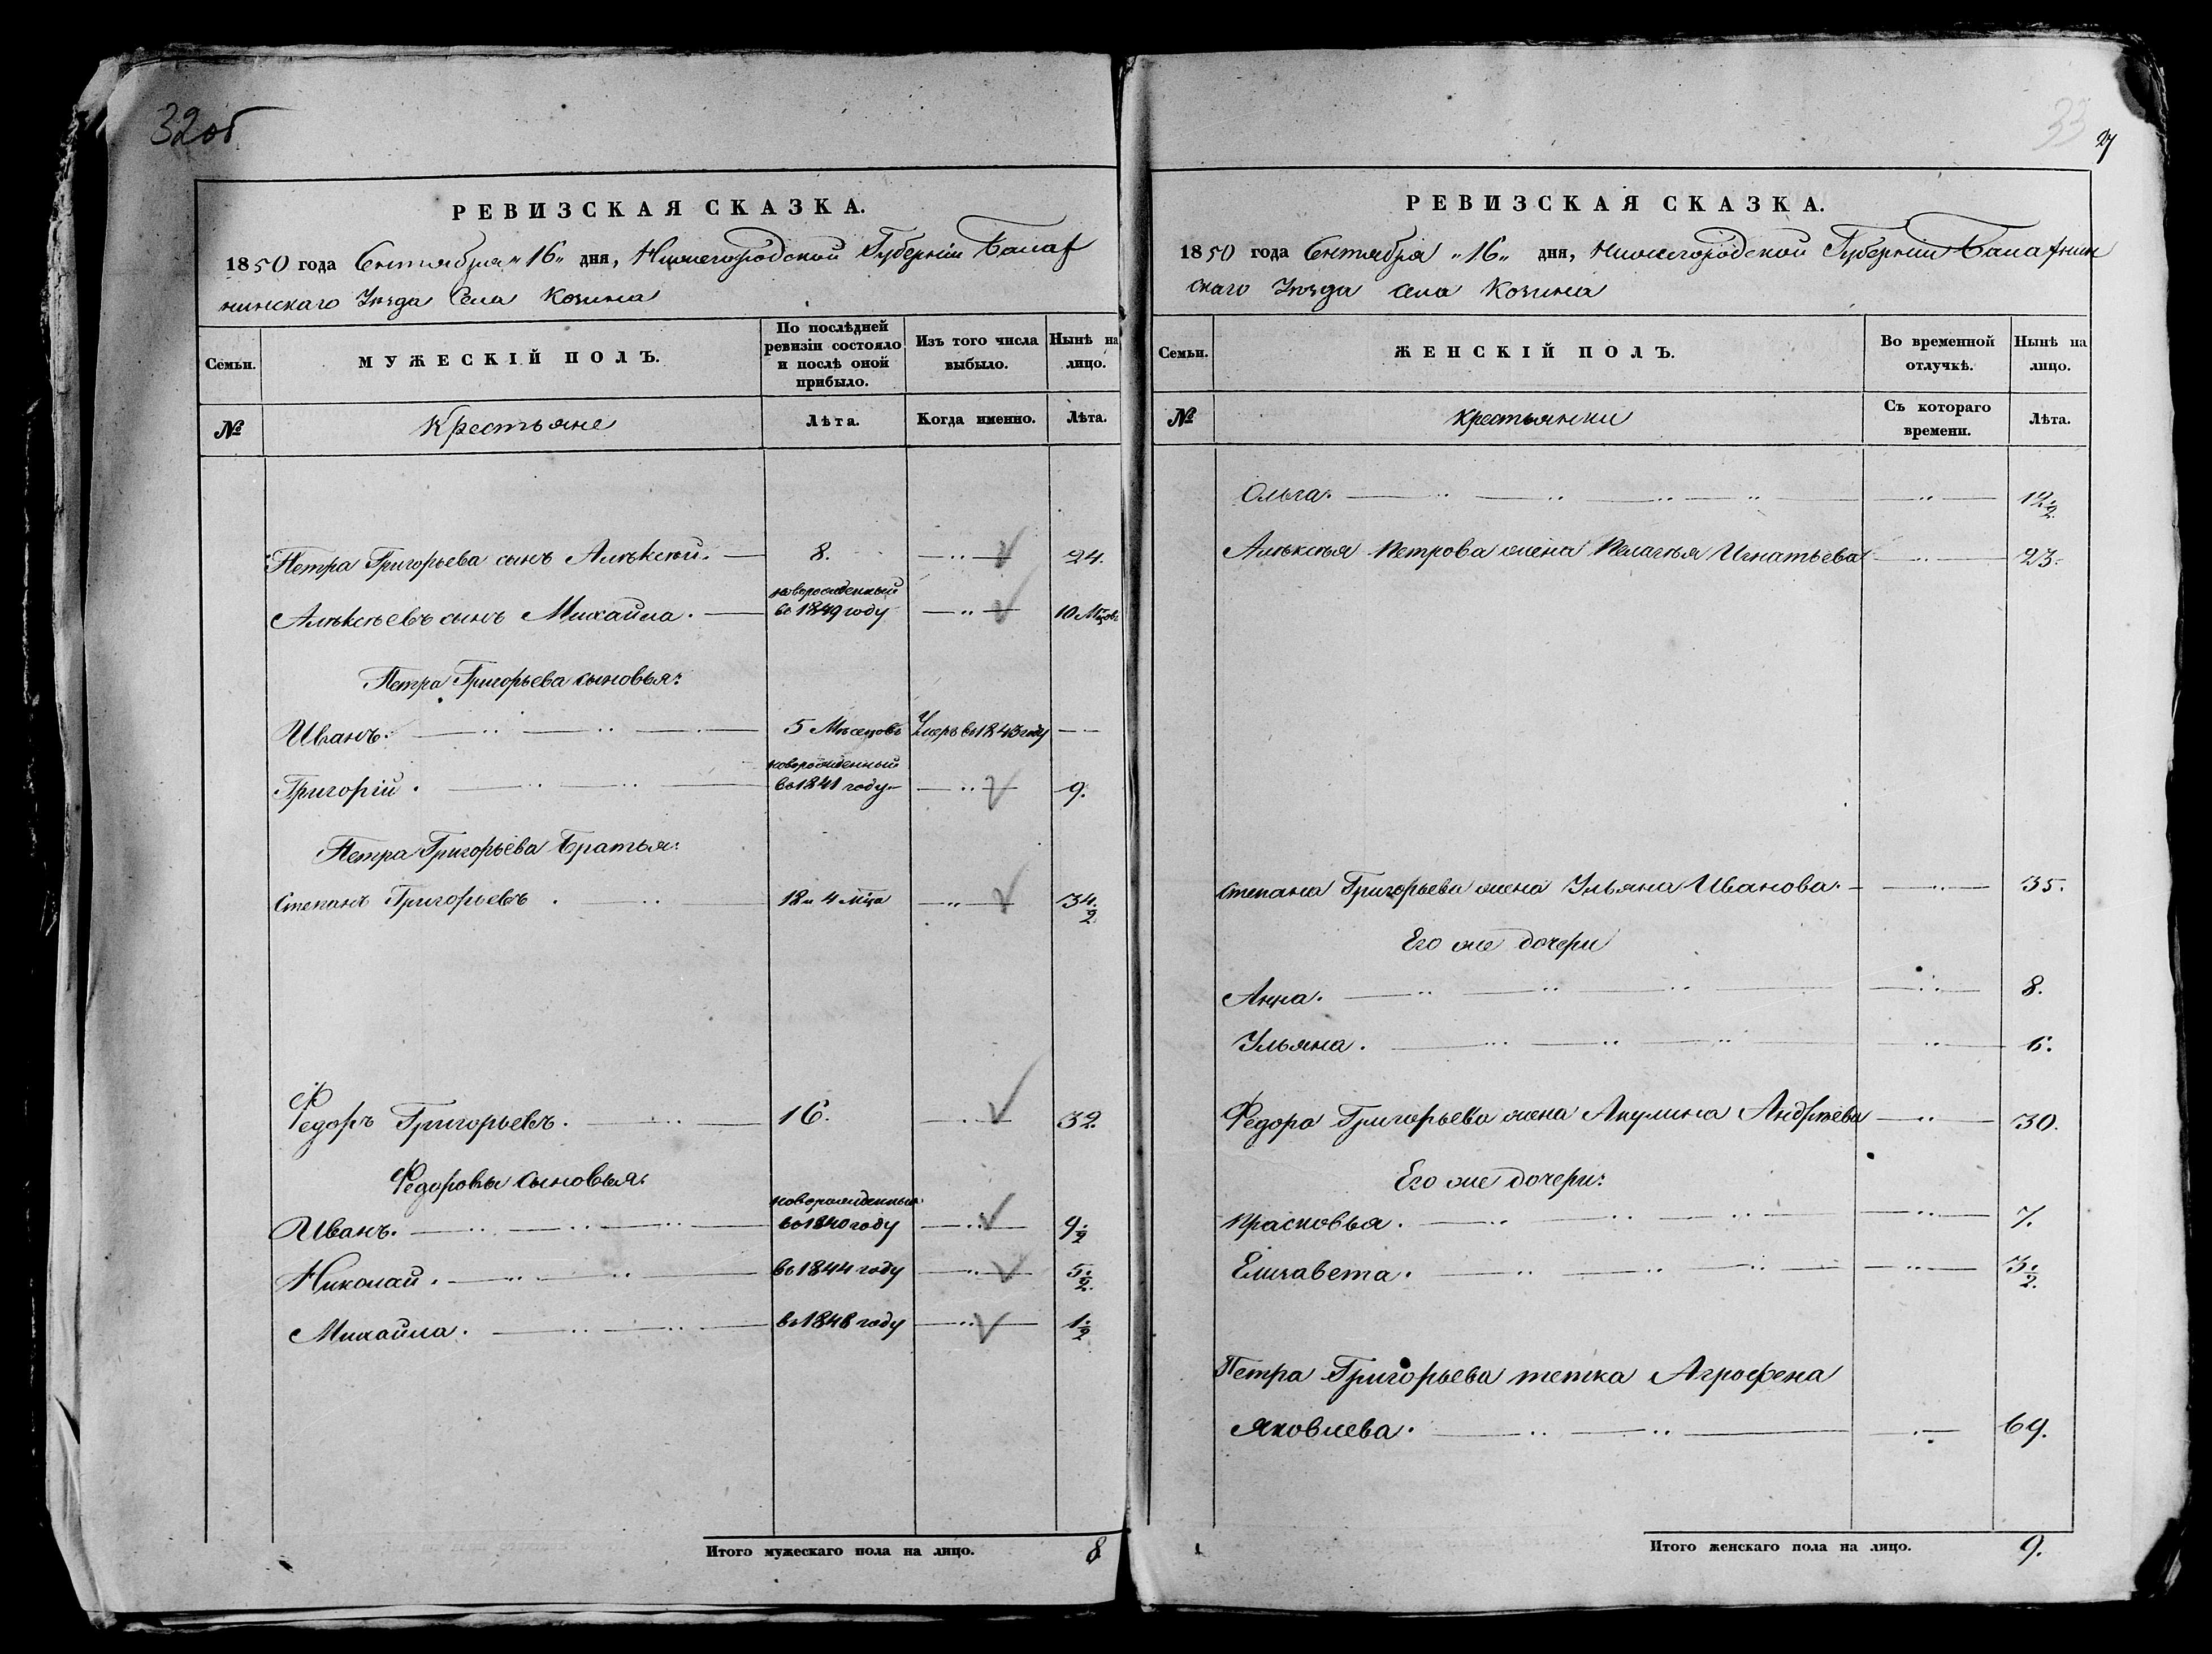 32об
РЕВИЗСКАЯ СКАЗКА.
1850 года Сентября „16„ дня, Нижегородской Губерніи Балах
нинскаго Уѣзда Села Козина
Семьи.
МУЖЕСКІЙ ПОЛЪ.
По послѣдней
ревизіи состояло
и послѣ оной
прибыло.
Изъ того числа
выбыло.
Нынѣ на
лицо.
№
Крестьяне
Лѣта.
Когда именно.
Лѣта.
Петра Григорьева сынъ Алѣксѣй. 8. 24.
новорожденный
Алѣксѣевъ сынъ Михайла. въ 1849 году 10 Мцовъ
Петра Григорьева сыновья:
Иванъ. 5 Мѣсецовъ Умеръ въ 1843 году
новорожденный
Григорій. въ 1841 году 9.
Петра Григорьева Братья:
Степанъ Григорьевъ. 18 и 4 мца 34. 2.
Федоръ Григорьевъ. 16. 32.
Федоровы сыновья:
новорожденный
Иванъ. въ 1840 году 9 ½
Николай. въ 1844 году 5 ½
Михайла. въ 1848 году 1 ½
Итого мужескаго пола на лицо. 8
33
РЕВИЗСКАЯ СКАЗКА.
1850 года Сентября „16„ дня, Нижегородской Губерніи Балахнин
скаго Уѣзда села Козина
Семьи.
ЖЕНСКІЙ ПОЛЪ.
Во временной
отлучкѣ.
Нынѣ на
лицо.
№
Крестьянки
Съ котораго
времени.
Лѣта.
Ольга. 12 ½
Алѣксѣя Петрова жена Пелагѣя Игнатьева 23.
Степана Григорьева жена Ульяна Иванова. 35.
Его же дочери
Анна. 8.
Ульяна. 6.
Федора Григорьева жена Акулина Андрѣева 30.
Его же дочери:
Прасковья. 7.
Елизавета. 3 ½
Петра Григорьева тетка Аграфена
Яковлева. 69.
Итого женскаго пола на лицо. 9.